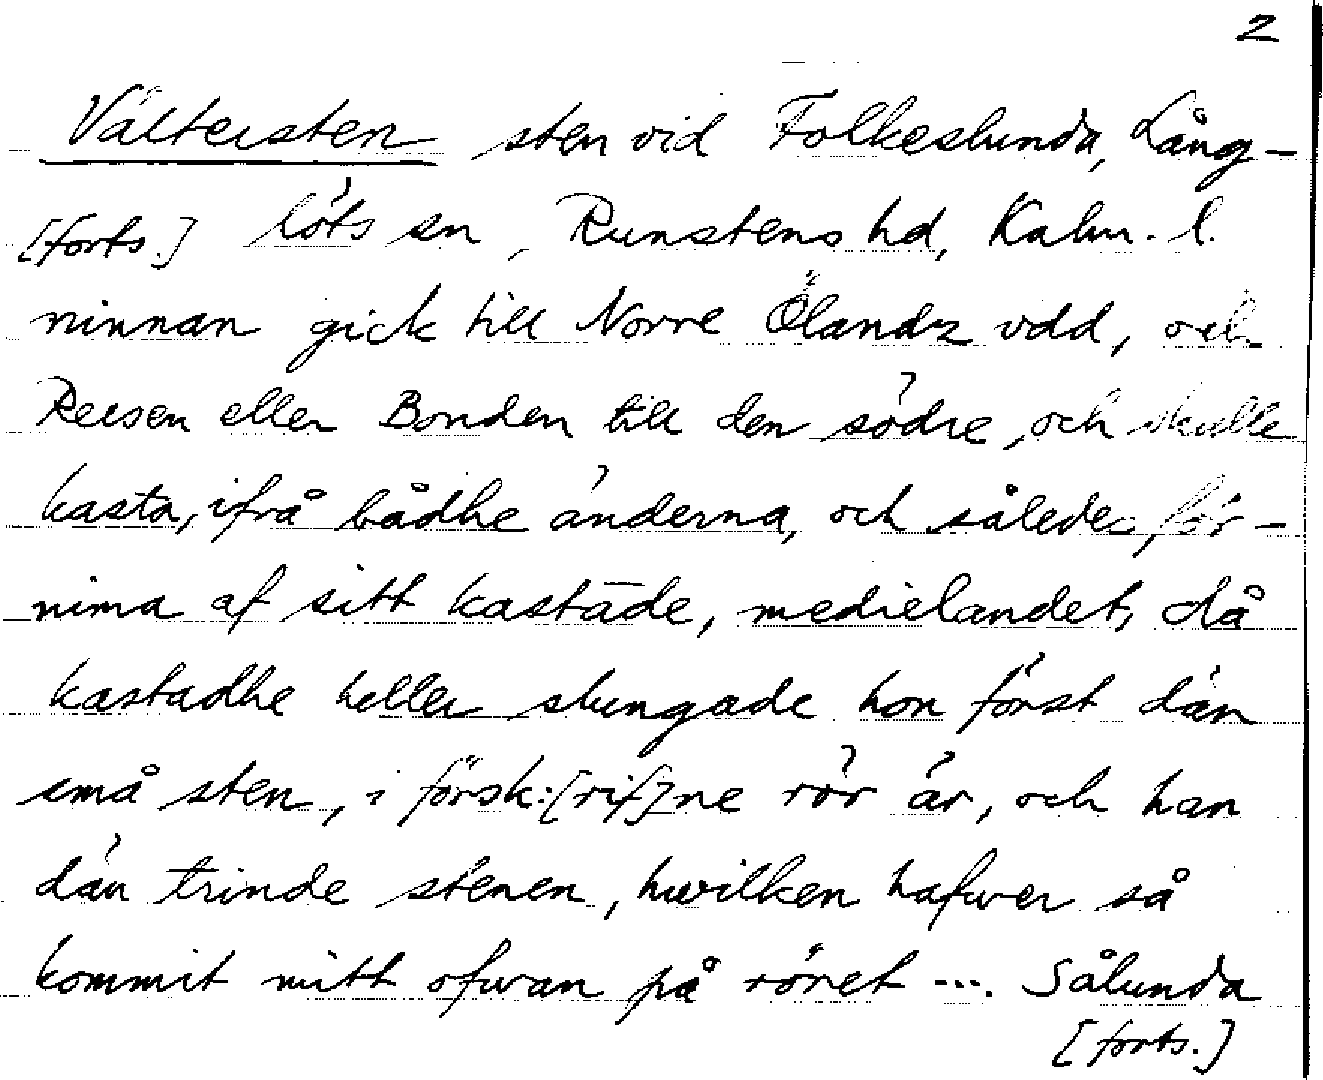 2
Vältersten sten vid Folkeslunda, Lång-
[forts.] löts sn, Runstens hd, Kalm. l.
ninnan gick till Norre Ölandz vdd, och
Reesen eller Bonden till den södre, och skulle
kasta, ifrå bådhe änderna, och således för-
nima af sitt kastāde, medielandet, då
kastadhe heller slungade hon först dän
små sten, i försk:[rif]ne rör är, och han
dän trinde stenen, hwilken hafwer så
kommit mitt ofwan på röret .... Sålunda
[forts.]